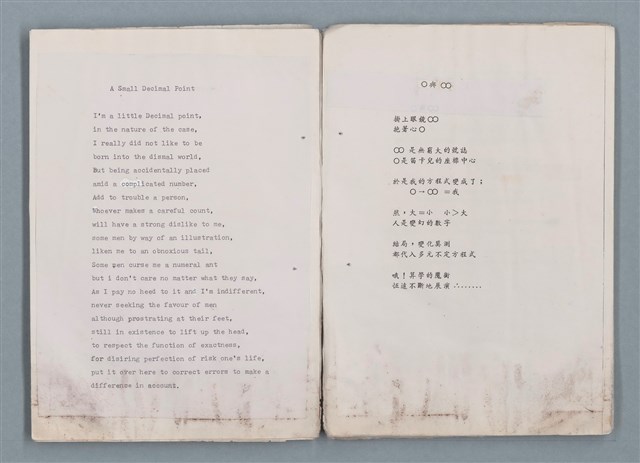 A Small Decimal Point
I'm a little Decimal point,
in the nature of the case,
I really did not like to be
born into the dismal world,
But being accidentally placed
amid a complicated number,
Add to trouble a person,
Whoever makes a careful count,
will have a strong dislike to me,
some men by way of an illustration,
liken me to an obnoxious tail,
Some men curse me a numeral ant
but i don't care no matter what they say,
As I pay no heed to it and I'm indifferent,
never seeking the favour of men
although prostrating at their feet,
still in existence to lift up the head,
to respect the function of exactness,
for disiring perfection of risk one's life,
put it over here to correct errors to make a
difference in account.
〇與 ∞
掛上眼鏡∞
抱著心〇
∞ 是無窮大的說誌
〇是笛卡兒的座標中心
於是我的方程式變成了;
〇→∞ =我
庶,大=小 小>大
人是變幻的數字
結局,變化莫測
都代入多元不定方程式
哦!算學的魔術
恆遠不斷地展演 ∴......